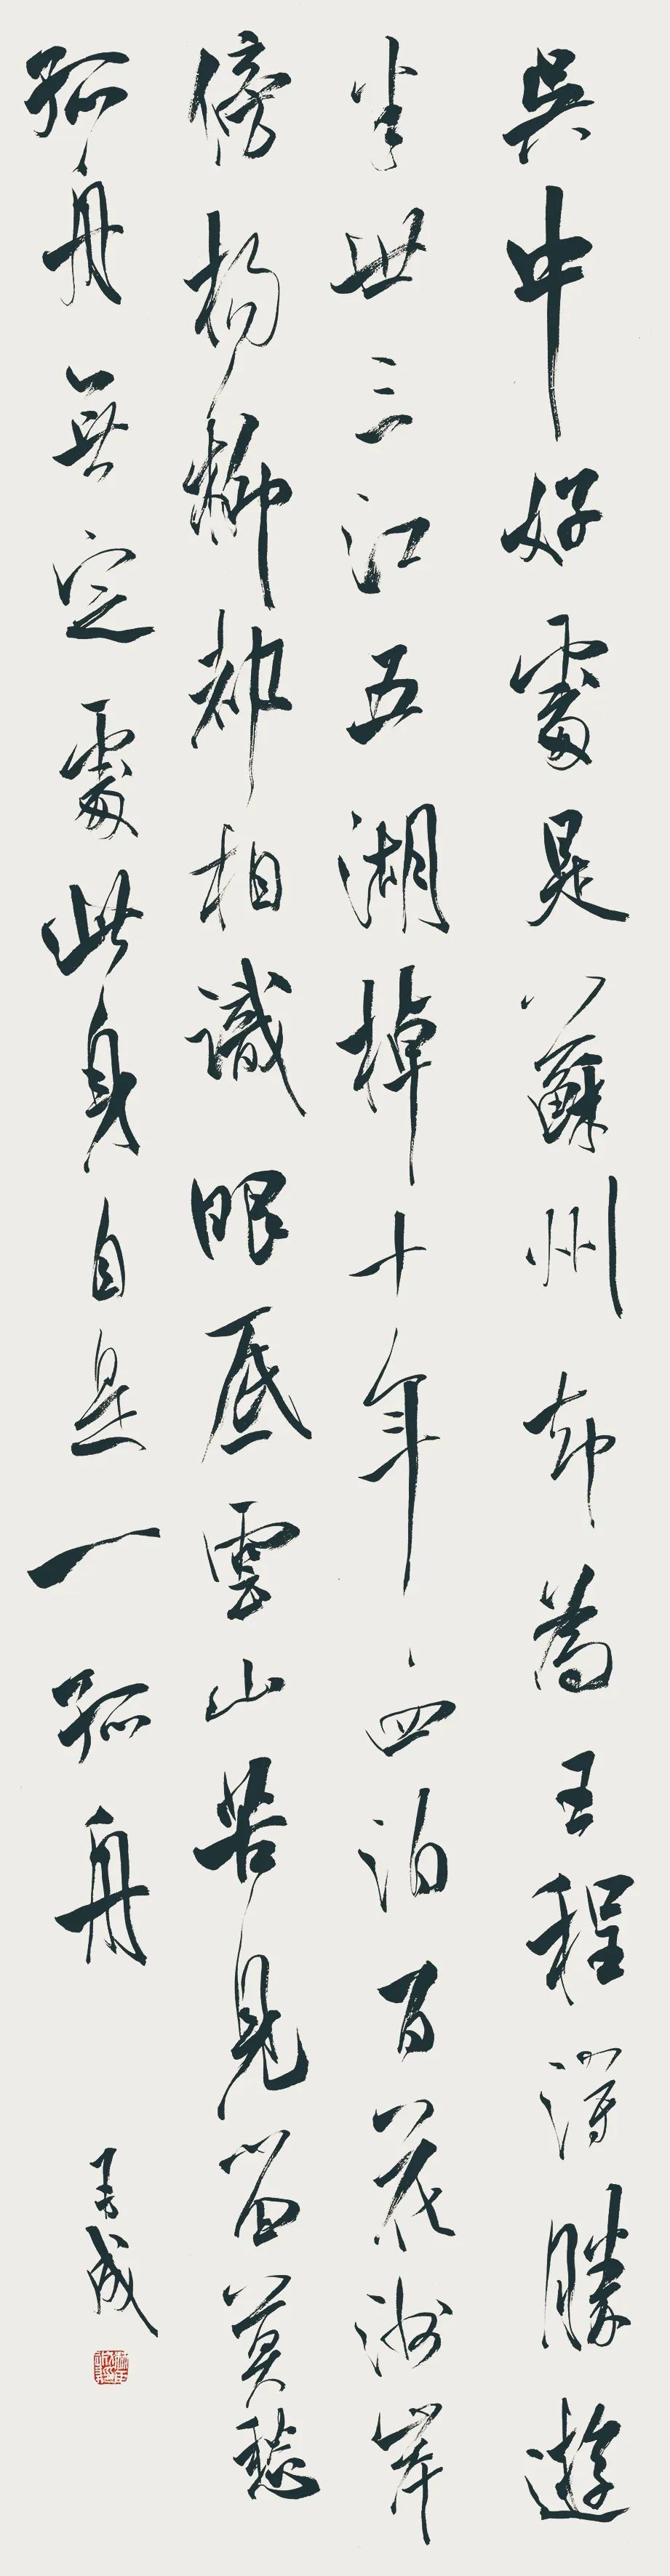 吳中好處是蘇州却為王程得勝遊
半世三江五湖棹十年四泊百花洲岸
傍楊柳都相識眼底雲山苦見留莫愁
孤舟無定處此身自是一孤舟